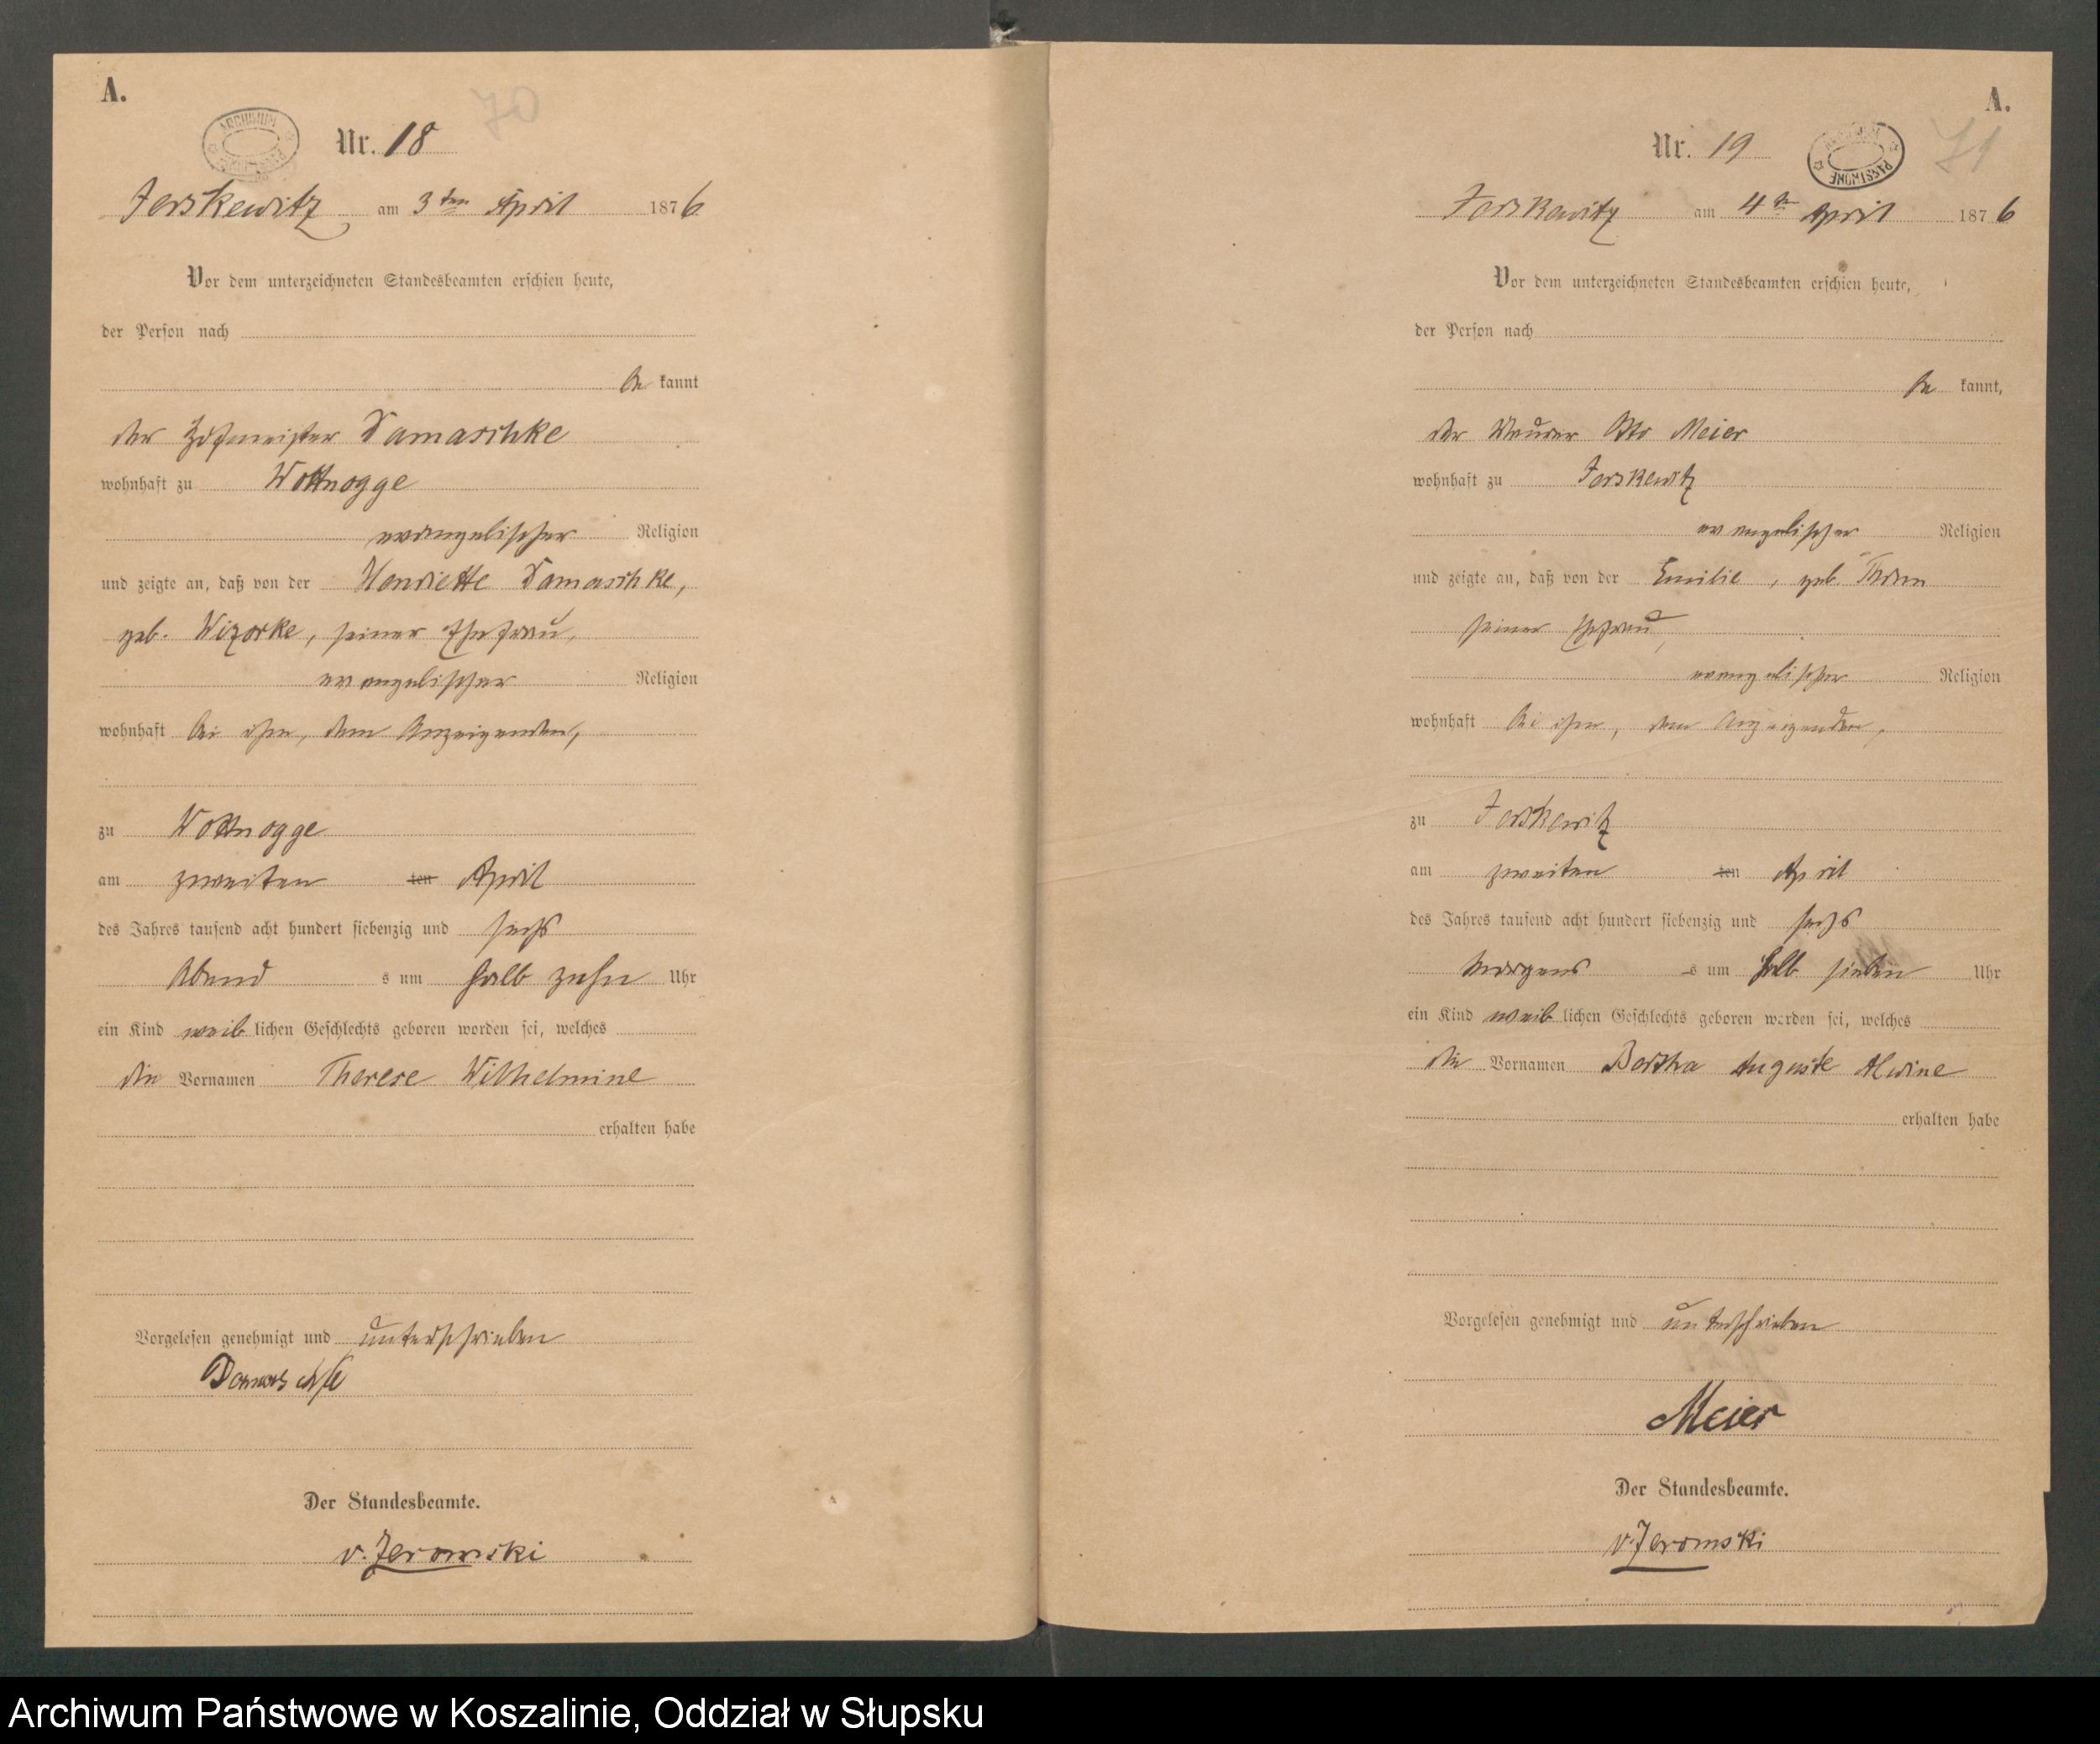 A.
70
ARCHIWUM
Nr. 18
Jerskewitz am 3ten April 1876
Vor dem unterzeichneten Standesbeamten erschien heute,
der Person nach
be kannt
der Hofmeister Damaschke
wohnhaft zu Wottnogge
evangelischer Religion
und zeigte an, daß von der Henriette Damaschke,
geb. Wizorke, seiner Ehefrau,
evangelischer Religion
wohnhaft bei ihm, dem Anzeigenden,
zu Wottnogge
am zweiten ten April
des Jahres tausend acht hundert siebenzig und sechs
Abend s um halb zehn Uhr
ein Kind weib lichen Geschlechts geboren worden sei, welches
die Vornamen Therese Wilhelmine
erhalten habe
Vorgelesen genehmigt und unterschrieben
Damaschke
Der Standesbeamte.
v. Jeromski
A.
71
Nr. 19
PAŃSTWOWE
Jerskewitz am 4ten April 1876
Vor dem unterzeichneten Standesbeamten erschien heute,
der Person nach
be kannt,
der Maurer Otto Meier
wohnhaft zu Jerskewitz
evangelischer Religion
und zeigte an, daß von der Emilie, geb.
seiner Ehefrau,
evangelischer Religion
wohnhaft bei ihm, dem Anzeigenden,
zu Jerskewitz
am zweiten ten April
des Jahres tausend acht hundert siebenzig und sechs
Morgens s um halb sieben Uhr
ein Kind weib lichen Geschlechts geboren worden sei, welches
die Vornamen Bertha Auguste Alwine
erhalten habe
Vorgelesen genehmigt und unterschrieben
Meier
Der Standesbeamte.
v. Jeromski
Archiwum Państwowe w Koszalinie, Oddział w Słupsku